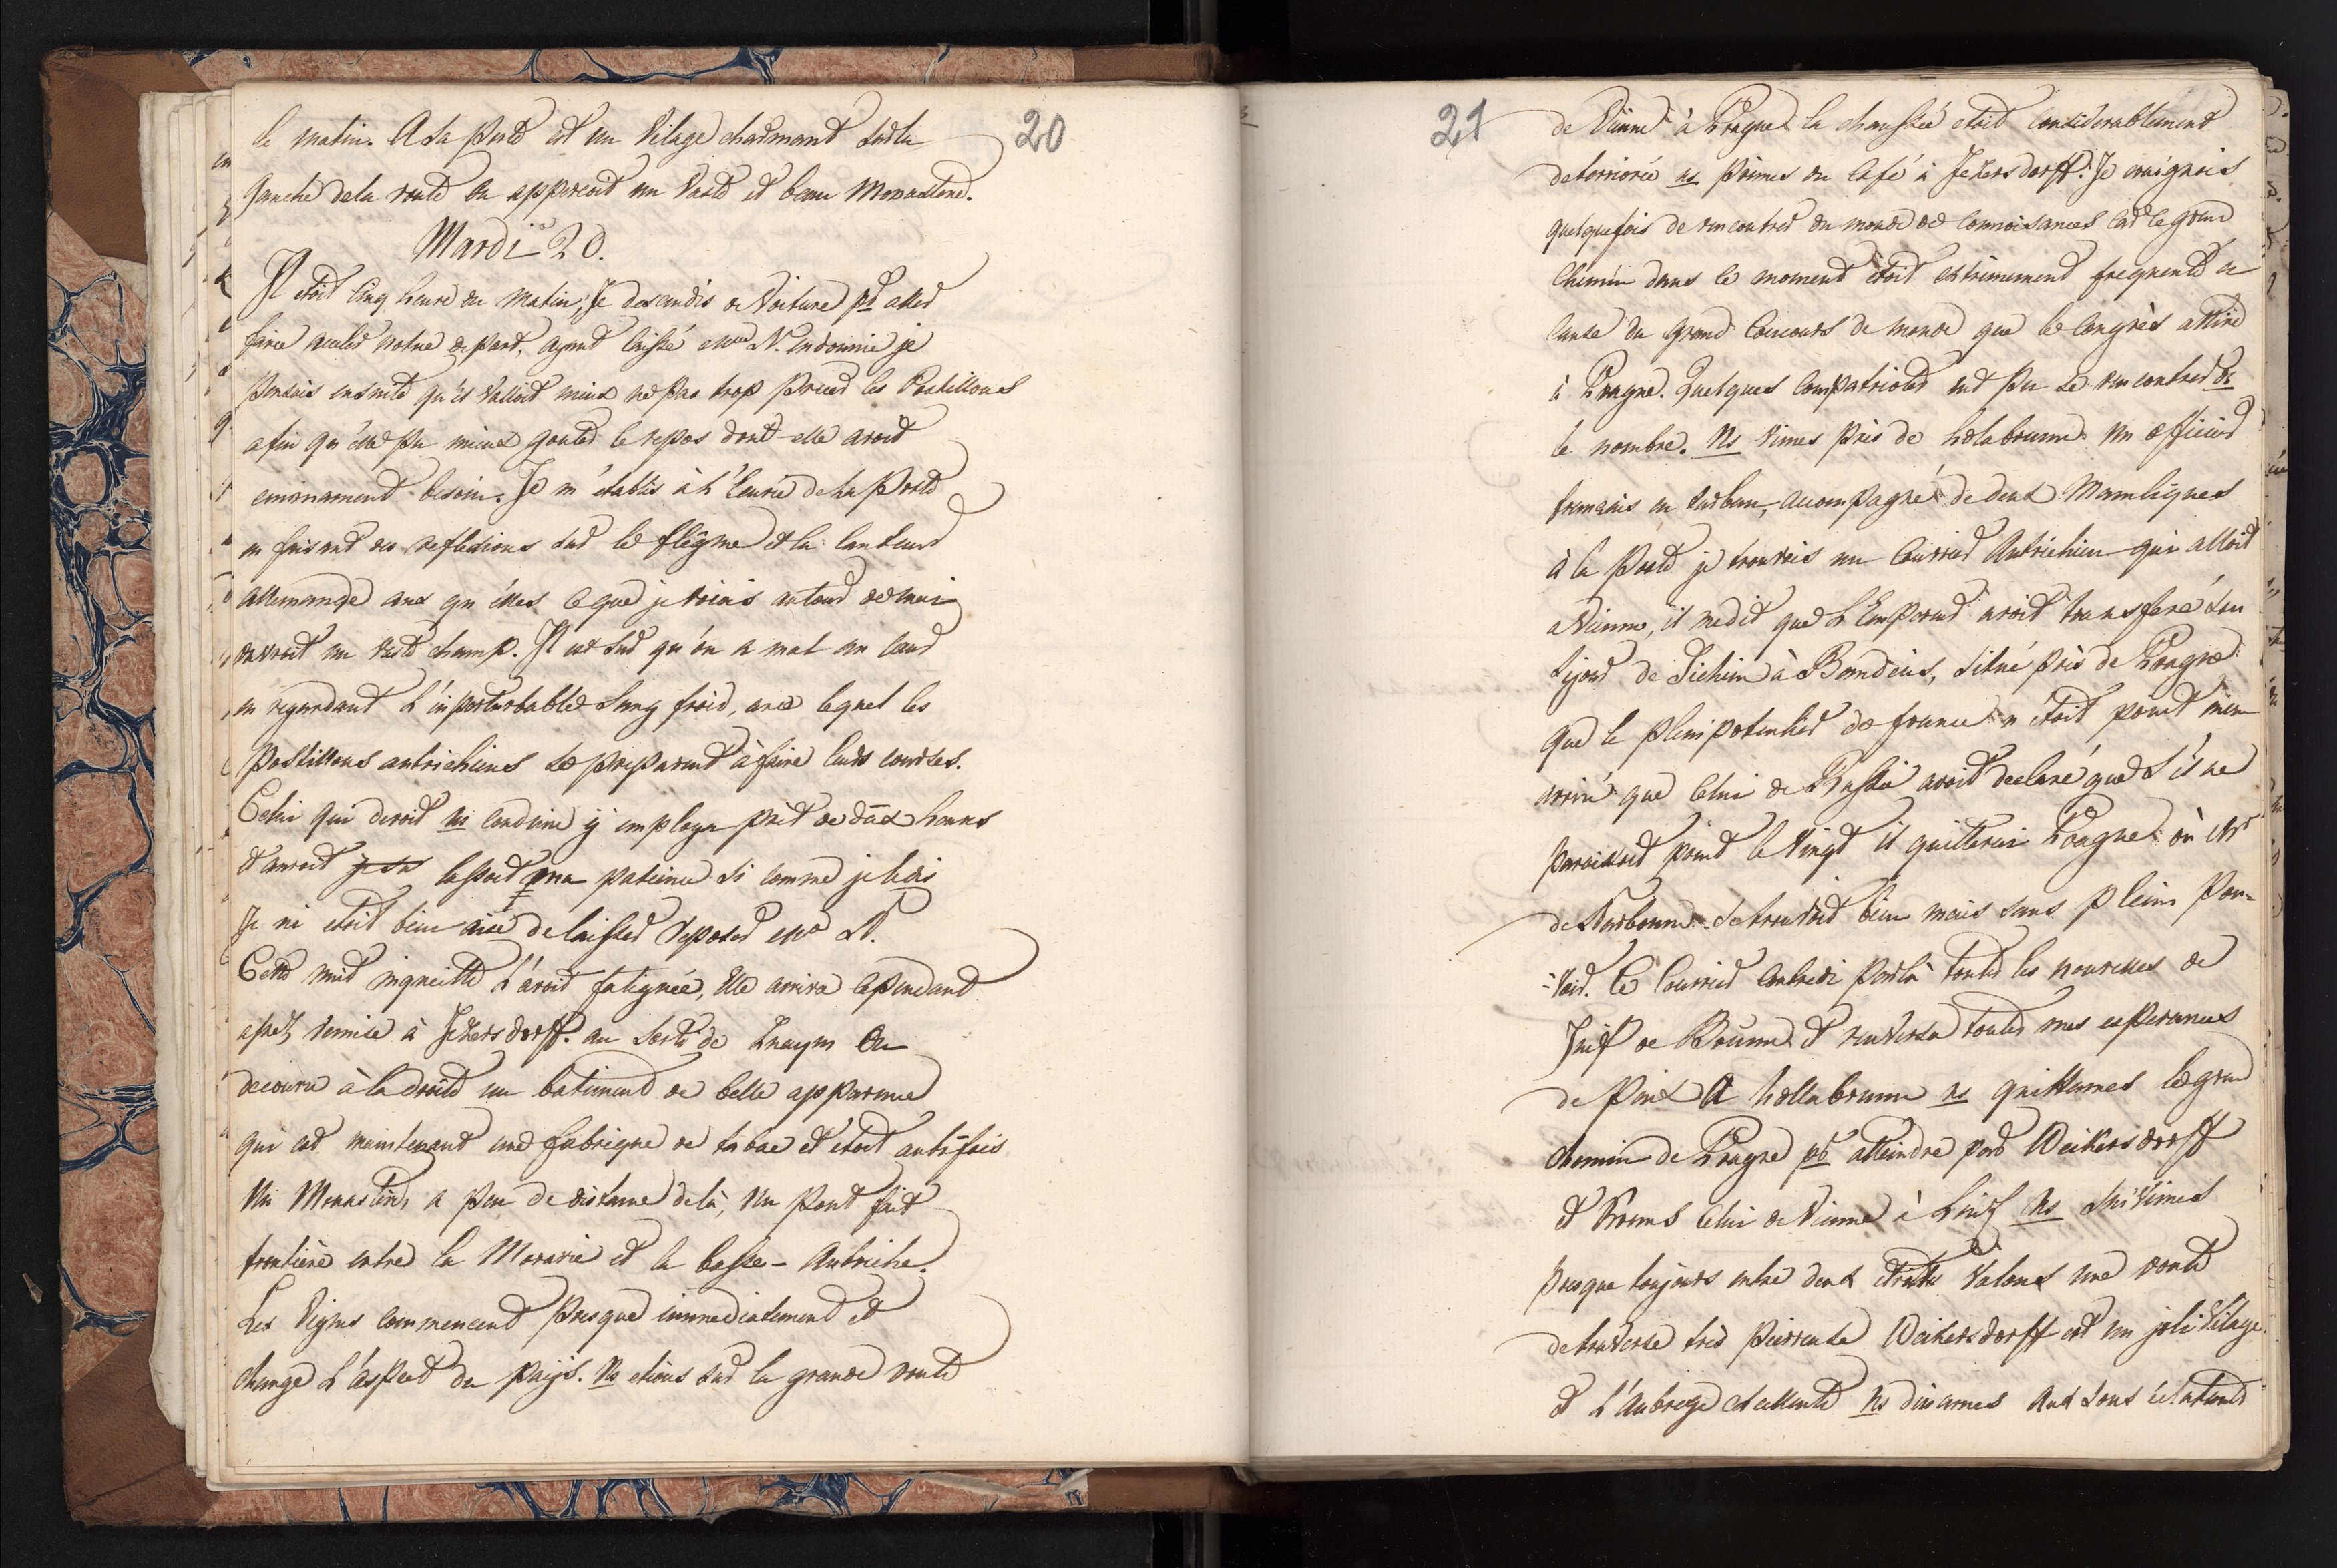 20
le matin. A la poste est un vilage charmant sur la
gauche de la route on apperçoit un vaste et beau Monastere.
Mardi 20.
Il etoit cinq heure du matin; Je descendis de voiture pr aller
faire acceler notre depart, ayant laissé Mme N. endormie je
pensais ensuite qu'il valloit mieux ne pas trop presser les Postillons
afin qu'elle pu mieux gouter le repos dont elle avoit
eminament besoin. Je m'établis à l'écurie de la poste
en faisant des reflexions sur le flegme et la lenteur
allemande aux qu'elles ce que je voiois autour de moi
ouvroit un vaste champ. Il est sur qu'on a mal au cœur
en regardant l'inperturbable sang froid, avec lequel les
postillons autrichiens se preparent à faire leurs courses.
Celui qui devoit ns conduire y employa prèt de deux heures
et auroit lassoit ma patience si comme je
Je ni etoit bien aise de laisser reposer Me N.
Cette nuit inquiette l'avoit fatignée, elle arriva cependant
assez remise à Jetzersdorff. au sortir de Znaym on
decouvre à la droite un batiment de belle apparence
qui est maintenant une fabrique de tabac et etoit autrefois
un Monastere, a peu de distance de là, un pont fait
frontière entre la Moravie et la basse-Autriche.
Les vignes commencent presque immediatement et
change l'aspect du pays. Ns etions sur la grande route
21
de Vienne à Prague la chaussée etoit considerablement
deterriorée ns primes du café à Jetzersdorff. Je craignois
quelquefois de rencontrer du monde de connoisances car le grand
chemin dans ce moment etoit extrèmement frequenté a
cause du grand concours de monde que le congrès attire
à Prague. Quelques compatriotes eut pu se rencontrer ds
le nombre. Ns vimes près de Holabrunn un officier
français en turban, accompagné de deux Mamliques
à la poste je trouvois un courrier Autrichien qui alloit
a Vienne, il me dit que l'Empereur avoit transferé son
sejour de Jichin à Brandeis, situé près de Prague
que le plenipotentier de france n'étoit point
arrivé que celui de Russie avoit declaré que s'il ne
paroissoit point le vingt il quitteroi Prague où Mr
de Narbonne se trouvoit bien mais sans pleins pou=
=voir. Ce courrier contredi parlà toutes les nouvelles de
Juif de Brünn et renversa toutes mes esperances
de paix A Hollabrunn ns quittames le grand
chemin de Prague pr atteindre par Weikersdorff
et Krems celui de Vienne à Linz Ns suivimes
presque toujours entre deux etroits valons une route
de traverse très pierreuse Weikersdorff est un joli vilage
et l'Aubrege excellente ns dinames aux sons éclatants